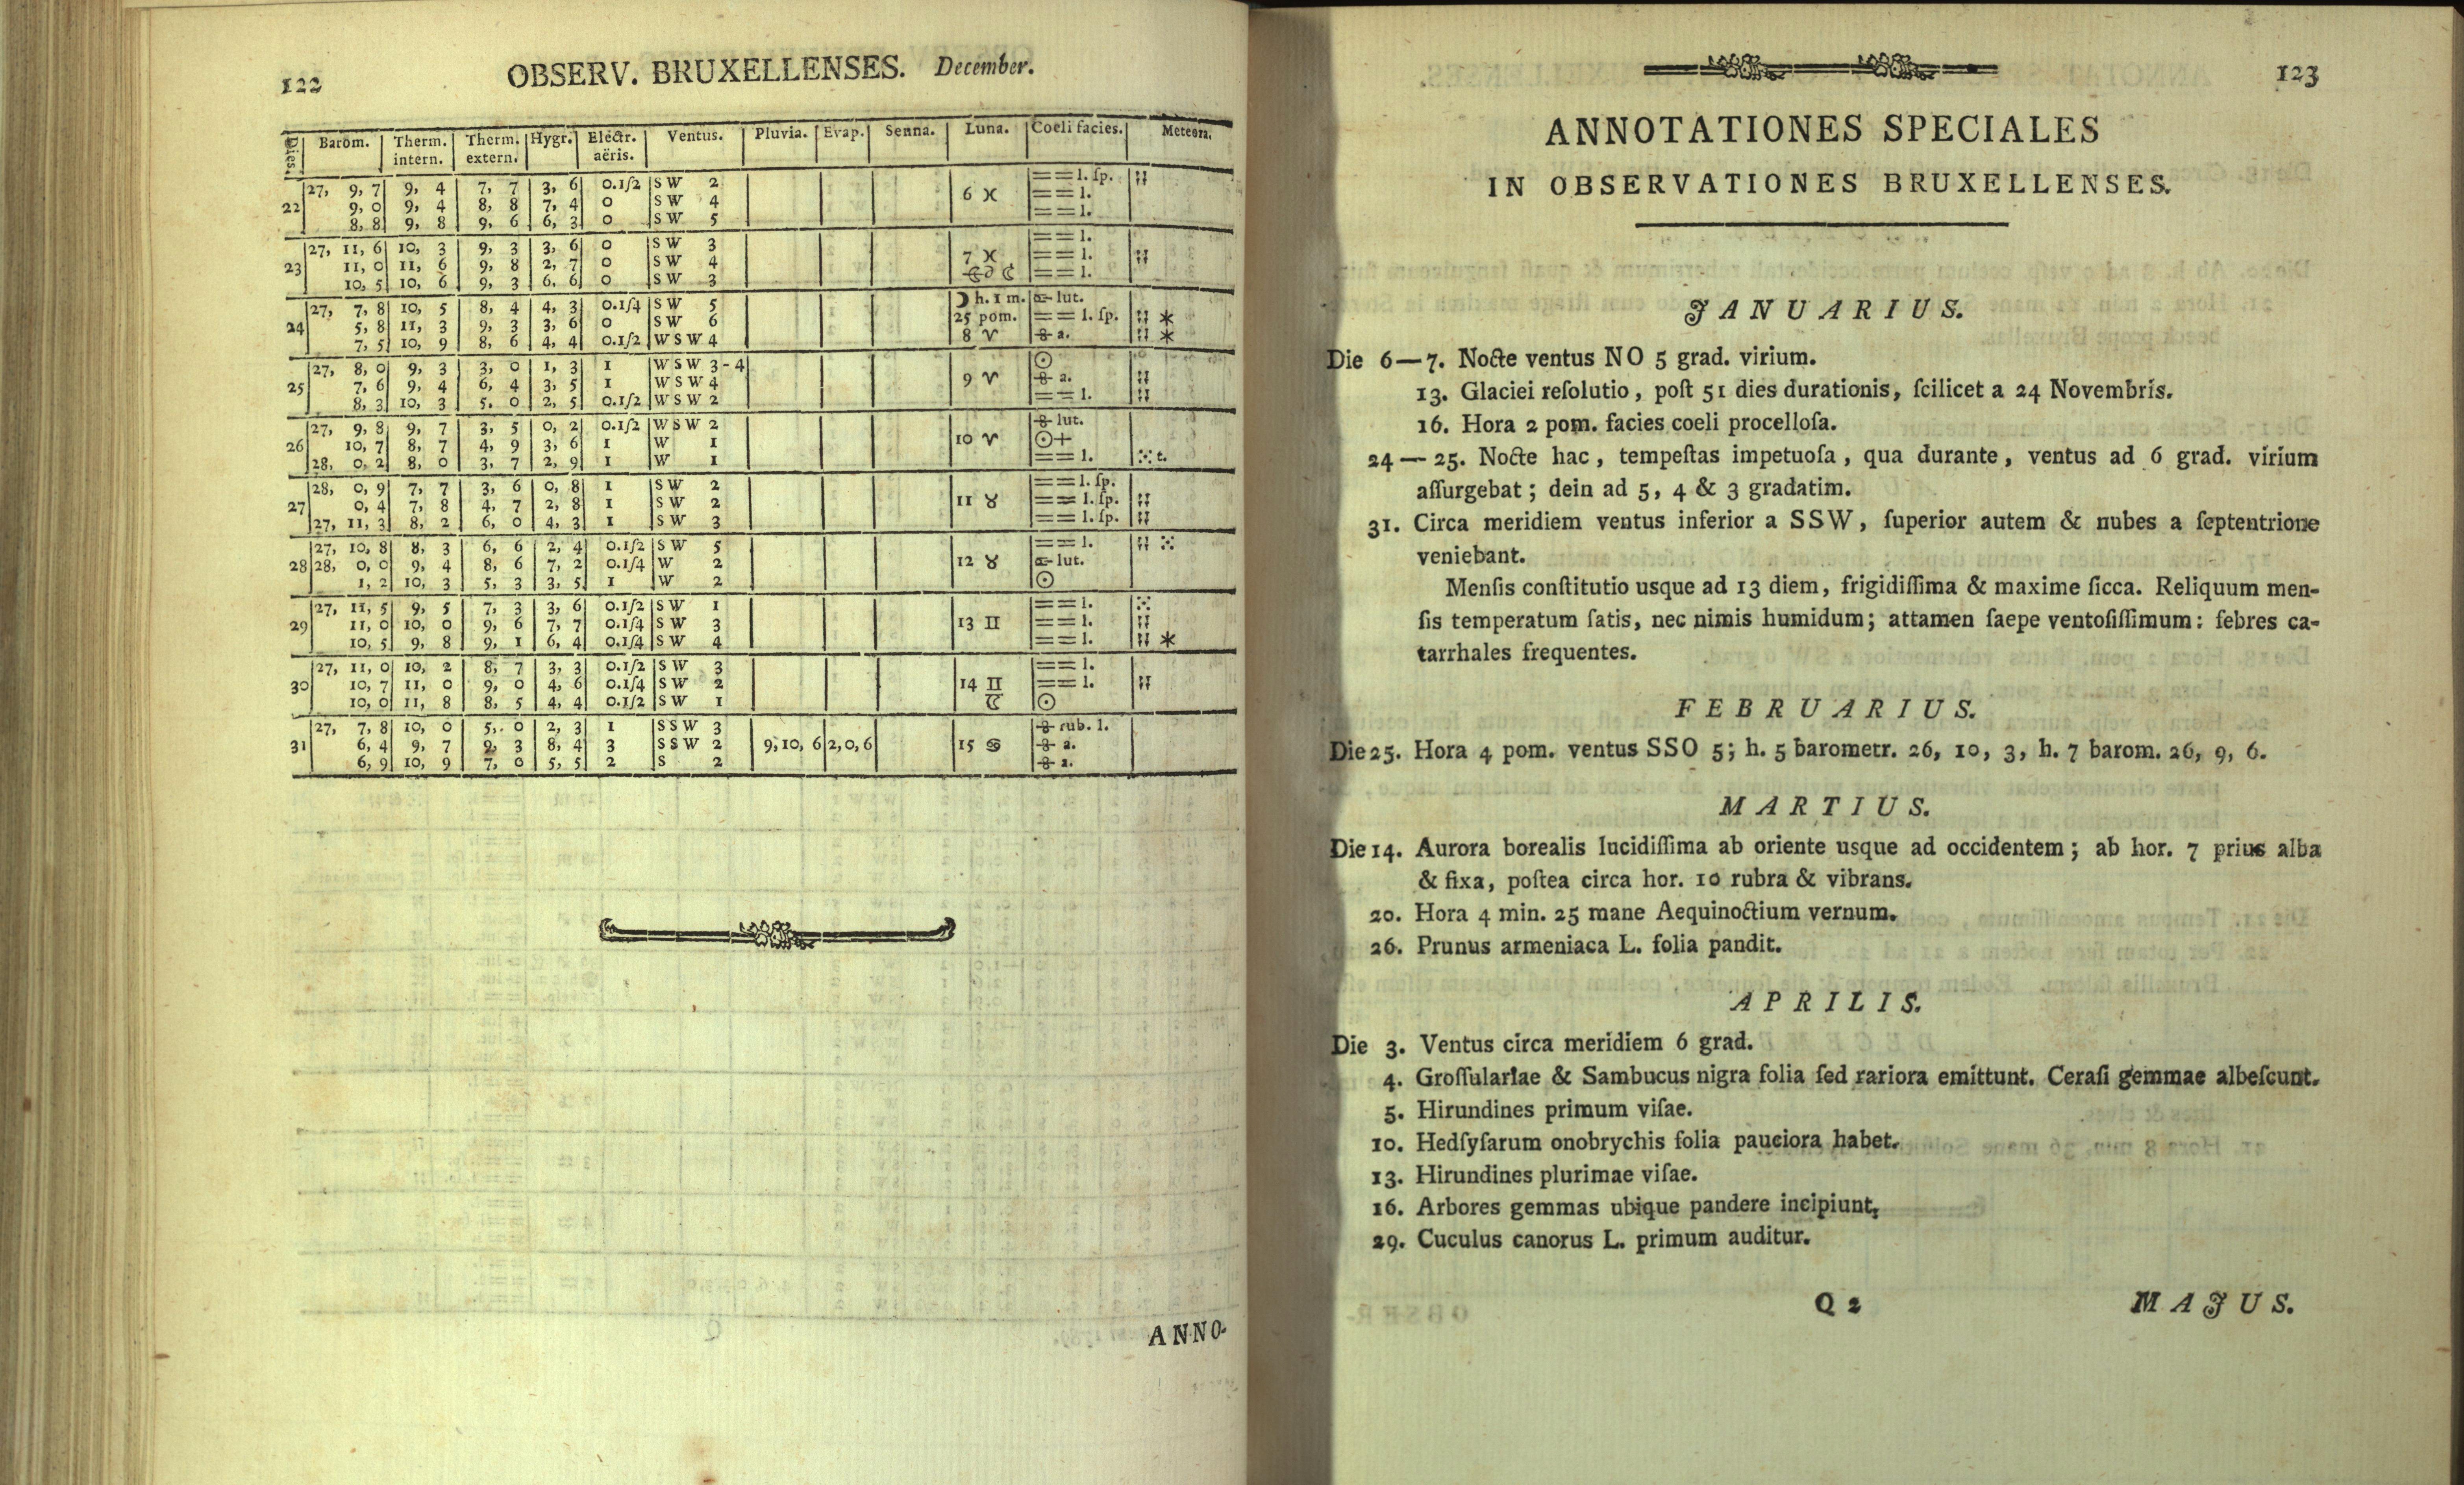 122
OBSERV. BRUXELLENSES. December.
Dies. Barom. Therm. intern. Therm. extern. Hygr. Electr. aëris. Ventus. Pluvia. Evap. Senna. Luna. Coeli facies. Meteora.
27, 9, 7 9, 4 7, 7 3, 6 0.1/2 S W 2 == l. ſp.
22 9, 0 9, 4 8, 8 7, 4 0 S W 4 6 ♓ == l.
8, 8 9, 8 9, 6 6, 3 0 S W 5 == l.
27, 11, 6 10, 3 9, 3 3, 6 0 S W 3 == l.
23 11, 0 11, 6 9, 8 2, 7 0 S W 4 7 ♓ == l.
10, 5 10, 6 9, 3 6, 6 0 S W 3 == l.
27, 7, 8 10, 5 8, 4 4, 3 0.1/4 S W 5 ☽ h. 1 m. lut.
24 5, 8 11, 3 9, 3 3, 6 0 S W 6 25 pom. == l. ſp. *
7, 5 10, 9 8, 6 4, 4 0.1/2 W S W 4 8 ♈ a. *
27, 8, 0 9, 3 3, 0 1, 3 1 W S W 3-4 ☉
25 7, 6 9, 4 6, 4 3, 5 1 W S W 4 9 ♈ a.
8, 3 10, 3 5, 0 2, 5 0.1/2 W S W 2 == l.
27, 9, 8 9, 7 3, 5 0, 2 0.1/2 W S W 2 lut.
26 10, 7 8, 7 4, 9 3, 6 1 W 1 10 ♈ ☉+
28, 0, 2 8, 0 3, 7 2, 9 1 W 1 == l. t.
28, 0, 9 7, 7 3, 6 0, 8 1 S W 2 == l. ſp.
27 0, 4 7, 8 4, 7 2, 8 1 S W 2 11 ♉ == l. ſp.
27, 11, 3 8, 2 6, 0 4, 3 1 S W 3 == l. ſp.
27, 10, 8 8, 3 6, 6 2, 4 0.1/2 S W 5 == l.
28 28, 0, 0 9, 4 8, 6 7, 2 0.1/4 W 2 12 ♉ lut.
1, 2 10, 3 5, 3 3, 5 1 W 2 ☉
27, 11, 5 9, 5 7, 3 3, 6 0.1/2 S W 1 == l.
29 11, 0 10, 0 9, 6 7, 7 0.1/4 S W 3 13 ♊ == l.
10, 5 9, 8 9, 1 6, 4 0.1/4 S W 4 == l. *
27, 11, 0 10, 2 8, 7 3, 3 0.1/2 S W 3 == l.
30 10, 7 11, 0 9, 0 4, 6 0.1/4 S W 2 14 ♊ == l.
10, 0 11, 8 8, 5 4, 4 0.1/2 S W 1 ☉
27, 7, 8 10, 0 5, 0 2, 3 1 S S W 3 rub. l.
31 6, 4 9, 7 9, 3 8, 4 3 S S W 2 9, 10, 6 2, 0, 6 15 ♋ a.
6, 9 10, 9 7, 0 5, 5 2 S 2 a.
ANNO-
123
ANNOTATIONES SPECIALES
IN OBSERVATIONES BRUXELLENSES.
JANUARIUS.
Die 6—7. Nocte ventus NO 5 grad. virium.
13. Glaciei reſolutio, poſt 51 dies durationis, ſcilicet a 24 Novembris.
16. Hora 2 pom. facies coeli procelloſa.
24—25. Nocte hac, tempeſtas impetuoſa, qua durante, ventus ad 6 grad. virium
aſſurgebat; dein ad 5, 4 & 3 gradatim.
31. Circa meridiem ventus inferior a SSW, ſuperior autem & nubes a ſeptentrione
veniebant.
Menſis conſtitutio usque ad 13 diem, frigidiſſima & maxime ſicca. Reliquum men-
ſis temperatum ſatis, nec nimis humidum; attamen ſaepe ventoſiſſimum: febres ca-
tarrhales frequentes.
FEBRUARIUS.
Die 25. Hora 4 pom. ventus SSO 5; h. 5 barometr. 26, 10, 3, h. 7 barom. 26, 9, 6.
MARTIUS.
Die 14. Aurora borealis lucidiſſima ab oriente usque ad occidentem; ab hor. 7 prius alba
& fixa, poſtea circa hor. 10 rubra & vibrans.
20. Hora 4 min. 25 mane Aequinoctium vernum.
26. Prunus armeniaca L. folia pandit.
APRILIS.
Die 3. Ventus circa meridiem 6 grad.
4. Groſſulariae & Sambucus nigra folia ſed rariora emittunt. Ceraſi gemmae albeſcunt.
5. Hirundines primum viſae.
10. Hedſyſarum onobrychis folia pauciora habet.
13. Hirundines plurimae viſae.
16. Arbores gemmas ubique pandere incipiunt.
29. Cuculus canorus L. primum auditur.
Q 2 MAJUS.